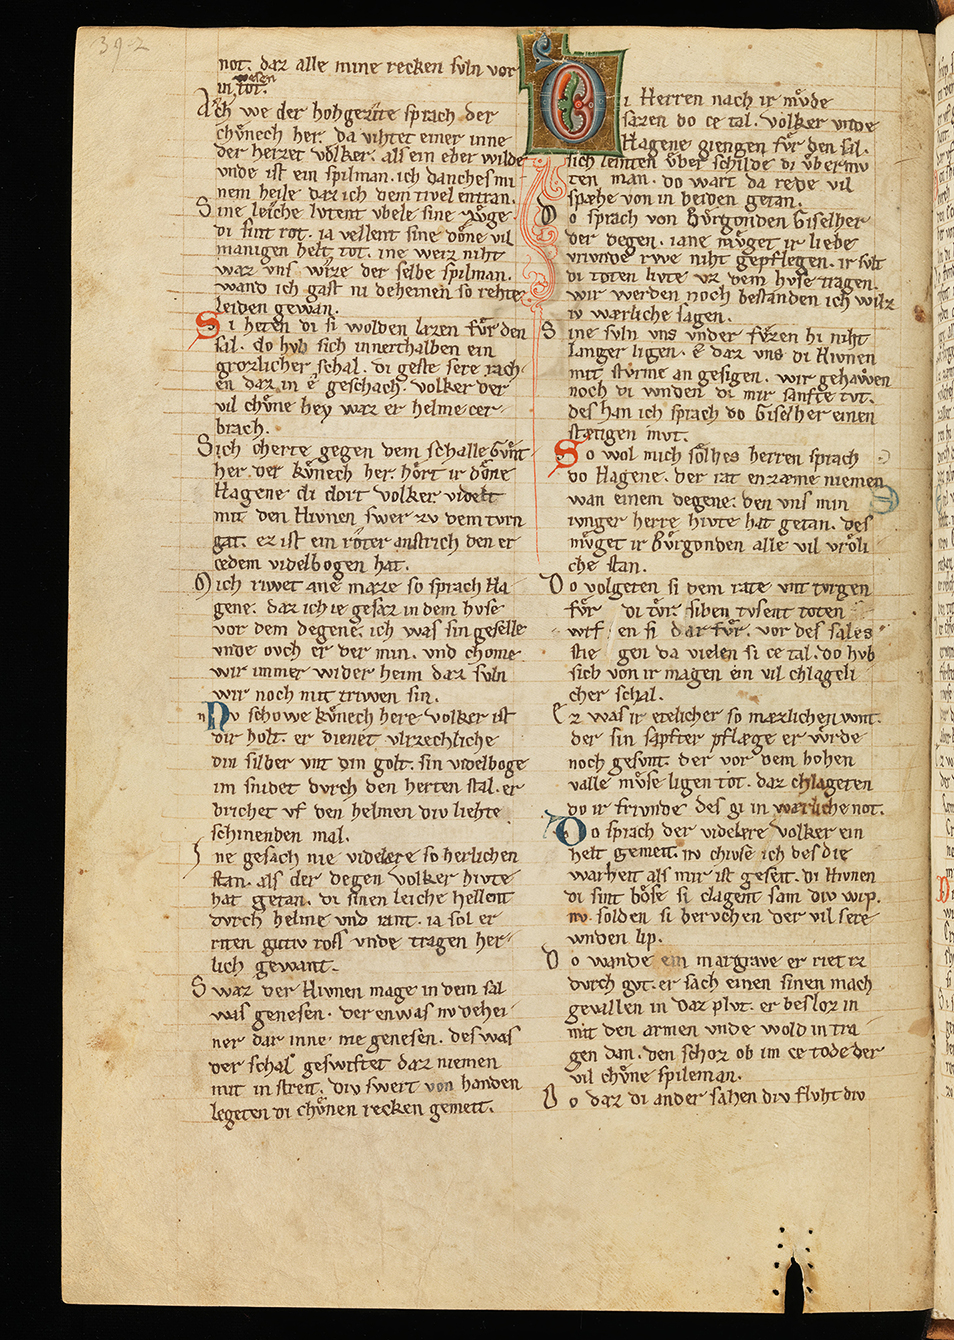 392
not. daz alle mine recken svln vor
in wesen tot.
Ach we der hohgezite sprach der
chvͤnech her. da vihtet einer inne
der heizet volker. als ein eber wilde
vnde ist ein spilman. ich danches mi
nem heile daz ich dem tivel entran.
Sine leiche lvtent vbele sine zvͤge
di sint rot. ia vellent sine doͤne vil
manigen helt tot. ine weiz niht
waz vns wize der selbe spilman.
wand ich gast ni deheinen so rehte
leiden gewan.
Si heten di si wolden lazen fvͤr den
sal. do hvb sich innerthalben ein
grozlicher schal. di geste sere rach
en daz in e geschach. volker der
vil chvͤne hey waz er helme cer
brach.
Sich cherte gegen dem schalle Gvnt
her der kvͤnech her. hoͤrt ir doͤne
Hagene di dort volker videlt
mit den Hivnen swer zv dem tvrn
gat. ez ist ein roter anstrich den er
cedem videlbogen hat.
Mich rivwet ane maze so sprach Ha
gene. daz ich ie gesaz in dem hvse
vor dem degene. ich was sin geselle
vnde ovch er der min. vnd chome
wir immer wider heim daz svln
wir noch mit triwen sin.
Nv schowe kvͤnech here volker ist
dir holt. er dienet vlizechliche
din silber vnt din golt. sin videlboge
im snidet dvrch den herten stal. er
brichet vf den helmen div liehte
schinenden mal.
Ine gesach nie videlere so herlichen
stan. als der degen volker hivte
hat getan. di sinen leiche hellent
dvrch helme vnd rant. ia sol er
riten gvtiv ross vnde tragen her
lich gewant.
Swaz der Hivnen mage in dem sal
was genesen. der enwas nv dehei
ner dar inne me genesen. des was
der schal geswiftet daz niemen
mit in streit. div swert von handen
legeten di chvͤnen recken gemeit.
Di Herren nach ir mvͤde
sazen do ce tal. volker vnde
Hagene giengen fvͤr den sal.
sich leinten vͤber schilde di vͤbermv
ten man. do wart da rede vil
spæhe von in beiden getan.
Do sprach von Bvͤrgonden Giselher
der degen. iane mvͤget ir liebe
vrivnde rwe niht gepflegen. ir svlt
di toten livte vz dem hvse tragen.
wir werden noch bestanden ich wilz
iv wærliche sagen.
Sine svln vns vnder fvͤzen hi niht
langer ligen. e daz vns di Hivnen
mit stvrme an gesigen. wir gehawen
noch di wnden di mir sanfte tvt.
des han ich sprach do Giselher einen
stætigen mvt.
So wol mich solhes herren sprach
do Hagene. der rat enzæme niemen
wan einem degene. den vns min
ivnger herre hivte hat getan. des
mvͤget ir Bvͤrgonden alle vil vroͤli
che stan.
Do volgeten si dem rate vnt trvgen
fvͤr di tvͤr siben tvsent toten
wrf en si dar fvͤr. vor des sales
stie gen da vielen si ce tal. do hvb
sich von ir magen ein vil chlageli
cher schal.
Ez was ir etelicher so mæzlichen wnt.
der sin sapfter pflæge er wvͤrde
noch gesvnt. der vor dem hohen
valle mvͤse ligen tot. daz chlageten
do ir frivnde des gi in warliche not.
Do sprach der videlere volker ein
helt gemeit. nv chivse ich des die
warheit als mir ist geseit. di Hivnen
di sint boͤse si clagent sam div wip.
nv solden si bervchen der vil sere
wnden lip.
Do wande ein margrave er riet iz
dvrch gvt. er sach einen sinen mach
gevallen in daz plvt. er besloz in
mit den armen vnde wold in tra
gen dan. den schoz ob im ce tode der
vil chvͤne spileman.
Do daz di ander sahen div flvht div